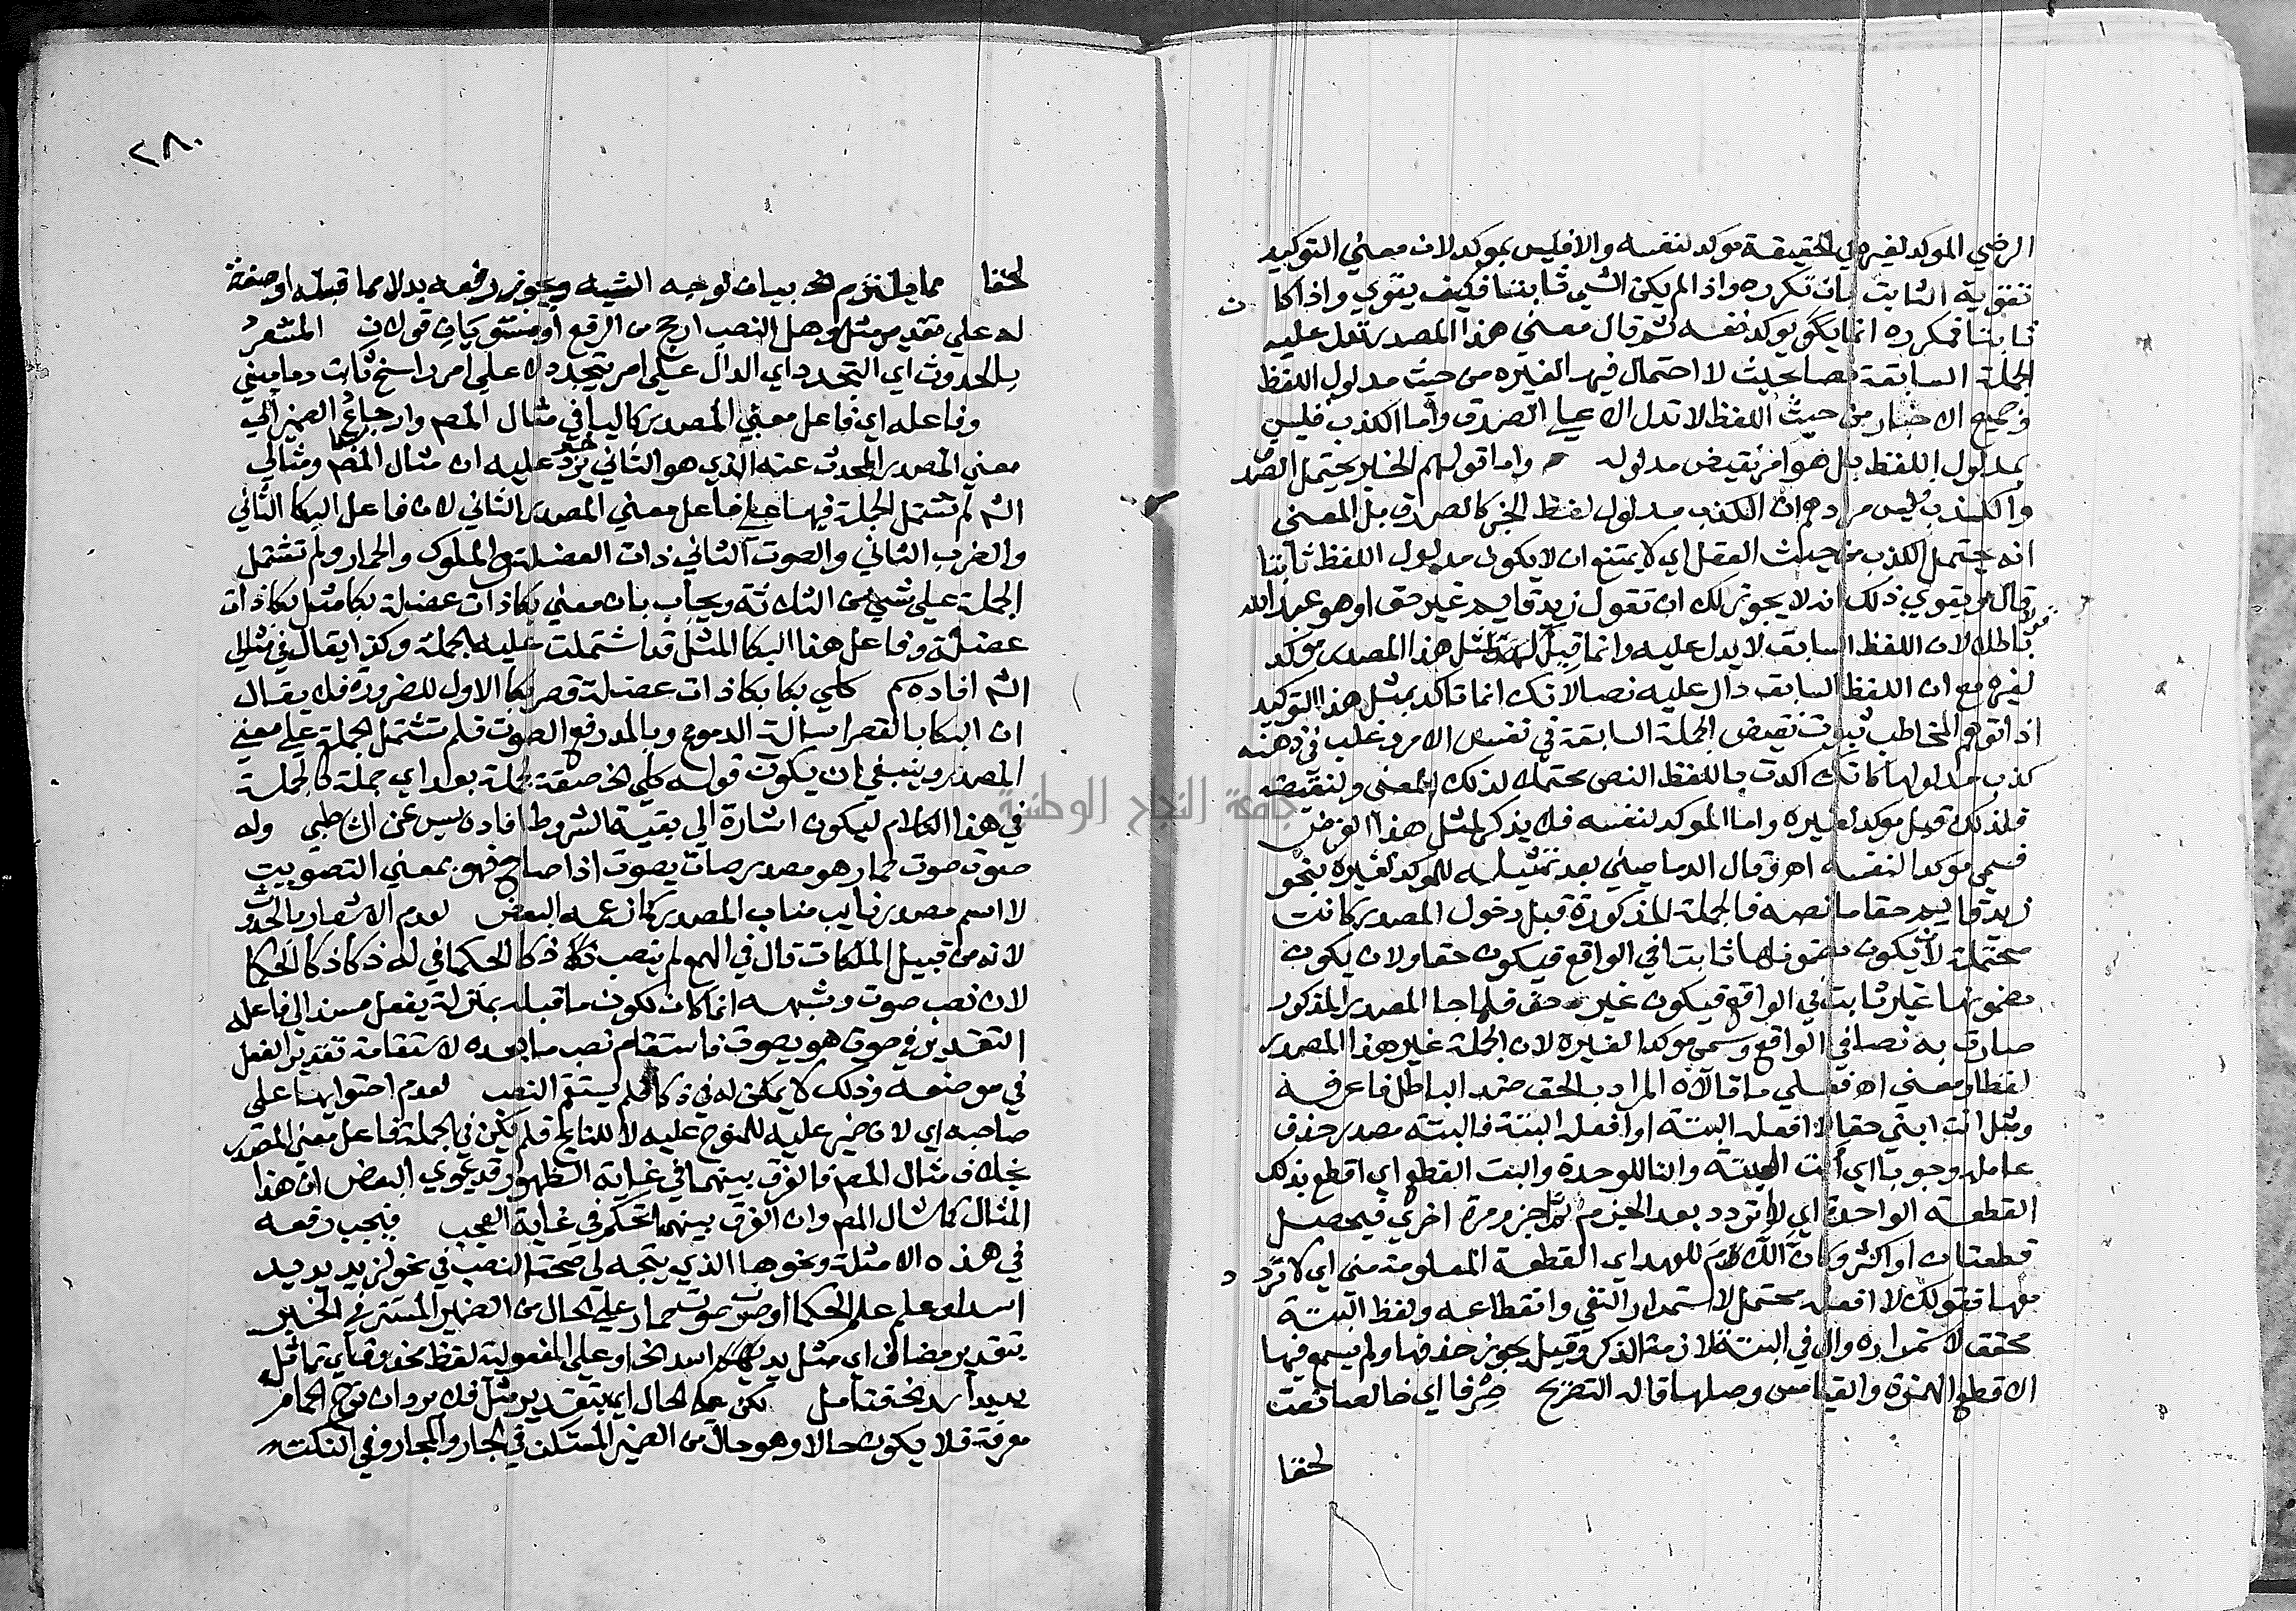 الرضي الموكد لغيره في الحقيقة موكد لنفسه والا فليس بموكد لان معني التوكيد
تقوية الثابت بان تكرره واذا لم يكن الشي ثابتا فكيف يقوي واذا كان
ثابتا فمكرره انما يوكد نفسه ثم قال معني هذا المصدر تدل عليه
الجملة السابقة نصا بحيث لا احتمال فيها لغيره من حيث مدلول اللفظ
فجميع الاخبار من حيث اللفظ لا تدل الا علي الصدق واما الكذب فليس
بمدلول اللفظ بل هو نقيض مدلوله واما قولهم الخبر يحتمل الصدق
والكذب فليس مرادهم ان الكذب مدلول لفظ الخبر كالصدق بل المعني
انه يحتمل الكذب من حيث العقل اي لا يمتنع ان لا يكون مدلول اللفظ ثابتا
قال ويقوي ذلك انه لا يجوز لك ان تقول زيد قايم غير حق او هو عبد الله
قولا باطلا لان اللفظ السابق لا يدل عليه وانما قيل لمثل هذا المصدر موكد
لغيره مع ان اللفظ السابق دال عليه نصا لانك انما تاكد بمثل هذا التوكيد
اذا توهم المخاطب ثبوت نقيض الجملة السابقة في نفس الامر وغلب في ذهنه
كذب مدلولها كانك اكدت باللفظ النص محتملا لذلك المعني ولنقيضه
فلذلك قيل موكد لغيره واما الموكد لنفسه فلا يذكر لمثل هذا الغرض
فسمي موكدا لنفسه اهـ وقال الدماميني بعد تمثيله للموكد لغيره بنحو
زيد قايم حقا ما نصه فالجملة المذكورة قبل دخول المصدر كانت
محتملة لان يكون مضمونها ثابتا في الواقع فيكون حقا ولان يكون
مضمونها غير ثابت في الواقع فيكون غير حق فلما جا المصدر المذكور
صارت به نصا في الواقع وسمي موكدا لغيره لان الجملة غير هذا المصدر
لفظا ومعني اهـ فعلي ما قالاه المراد بالحق ضد الباطل فاعرفه
ومثل انت ابني حقا لا افعله البتة او افعله البتة فالبتة مصدر حذف
عامله وجوبا اي ابت البتة والتا للوحدة والبت القطع اي اقطع بذلك
القطعة الواحدة اي لا تردد بعد الجزم ثم اجزم مرة اخري فيحصل
قطعتان او اكثر وكان اللام للعهد اي القطعة المعلومة مني اي لا تردد
معها فقولك لا افعله محتمل لاستمرار النفي وانقطاعه ولفظ البتة
محقق لاستمراره وال في البتة لازمة الذكر وقيل يجوز حذفها ولم يسمع فيها
الا قطع الهمزة والقياس وصلها قاله التصريح صرفا اي خالصا نعت
لحقا
٢٨٠
لحقا مما يلتزم بيان لوجه الشبه ويجوز رفعه بدلا مما قبله او صفة
له علي تقدير مثل وهل النصب ارجح من الرفع او مستويان قولان المشعر
بالحدوث اي التجدد اي الدال علي امر يتجدد لا علي امر راسخ ثابت دماميني
وفاعله اي فاعل معني المصدر كاليا في مثال المصـ وارجاع الضمير الي
معني المصدر المحدث عنه الذي هو الثاني يرد عليه ان مثال المصـ ومثالي
الشـ لم تشتمل الجملة فيها علي فاعل معني المصدر الثاني لان فاعل البكا الثاني
والضرب الثاني والصوت الثاني ذات العضلة والملوك والحمار ولم تشتمل
الجملة علي شي من الثلاثة ويجاب بان معني بكا ذات عضلة بكا مثل بكا ذات
عضلة وفاعل هذا البكا المثل قد اشتملت عليه الجملة وكذا يقال في مثالي
الشـ افاده سم كلي بكا بكا ذات عضلة قصر بكا الاول للضرورة فلا يقال
ان البكا بالقصر اسالة الدموع وبالمد رفع الصوت فلم تشتمل الجملة علي معني
المصدر وينبغي ان يكون قوله كلي الخ صفة لجملة بعد اي جملة كالجملة
في هذا الكلام ليكون اشارة الي بقية الشروط افاده يس عن الشاطبي وله
صوت صوت حمار هو مصدر صات يصوت اذا صاح فهو بمعني التصويت
لا اسم مصدر نايب مناب المصدر كما زعمه البعض لعدم الاشعار بالحدوث
لانه من قبيل الملكات قال في الهمع لم ينصب ذكا الحكما في له ذكا ذكا الحكما
لان نصب صوت وشبهه انما كان لكون ما قبله بمنزلة يفعل مسندا الي فاعله
التقدير في صوت هو يصوت فاستقام نصب ما بعده لاستقامة تقدير الفعل
في موضعه وذلك لا يمكن له في ذكا فلم يستقم النصب لعدم احتوايها علي
صاحبه اي لان ضمير عليه للمنوح عليه لا للنايح فلم يكن في الجملة فاعل معني المصدر
بخلاف مثال المصـ فالفرق بينهما في غاية الظهور فدعوي البعض ان هذا
المثال كمثال المصـ وان الفرق بينهما تحكم في غاية العجب فيجب رفعه
في هذه الامثلة ونحوها الذي يتجه لي صحة النصب في نحو لزيد يد يد
اسد او علم علم الحكما او صوت صوت حمار علي الحال من الضمير المستتر في الخبر
بتقدير مضاف اي مثل يد اسد الخ او علي المفعولية لفظ محذوف اي تماثل
يد يد اسد الخ فتامل لكن علي الحال اي بتقدير مثل فلا يرد ان نوح الحمام
معرفة فلا يكون حالا وهو حال من الضمير المستكن في الجار والمجرور وفي النكت
جامعة النجاح الوطنية